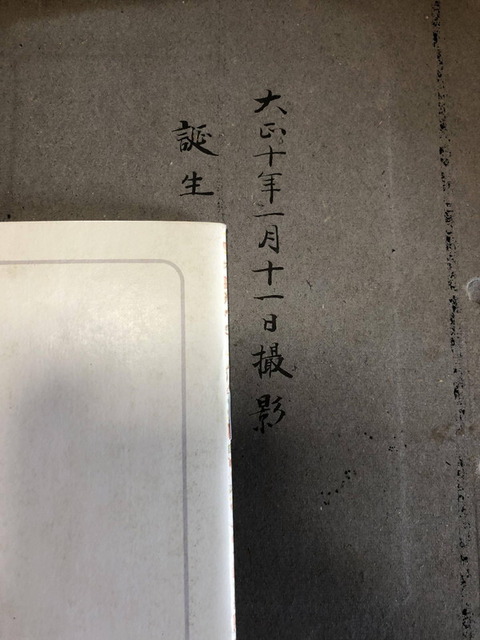 大正十年二月十一日撮影
誕生